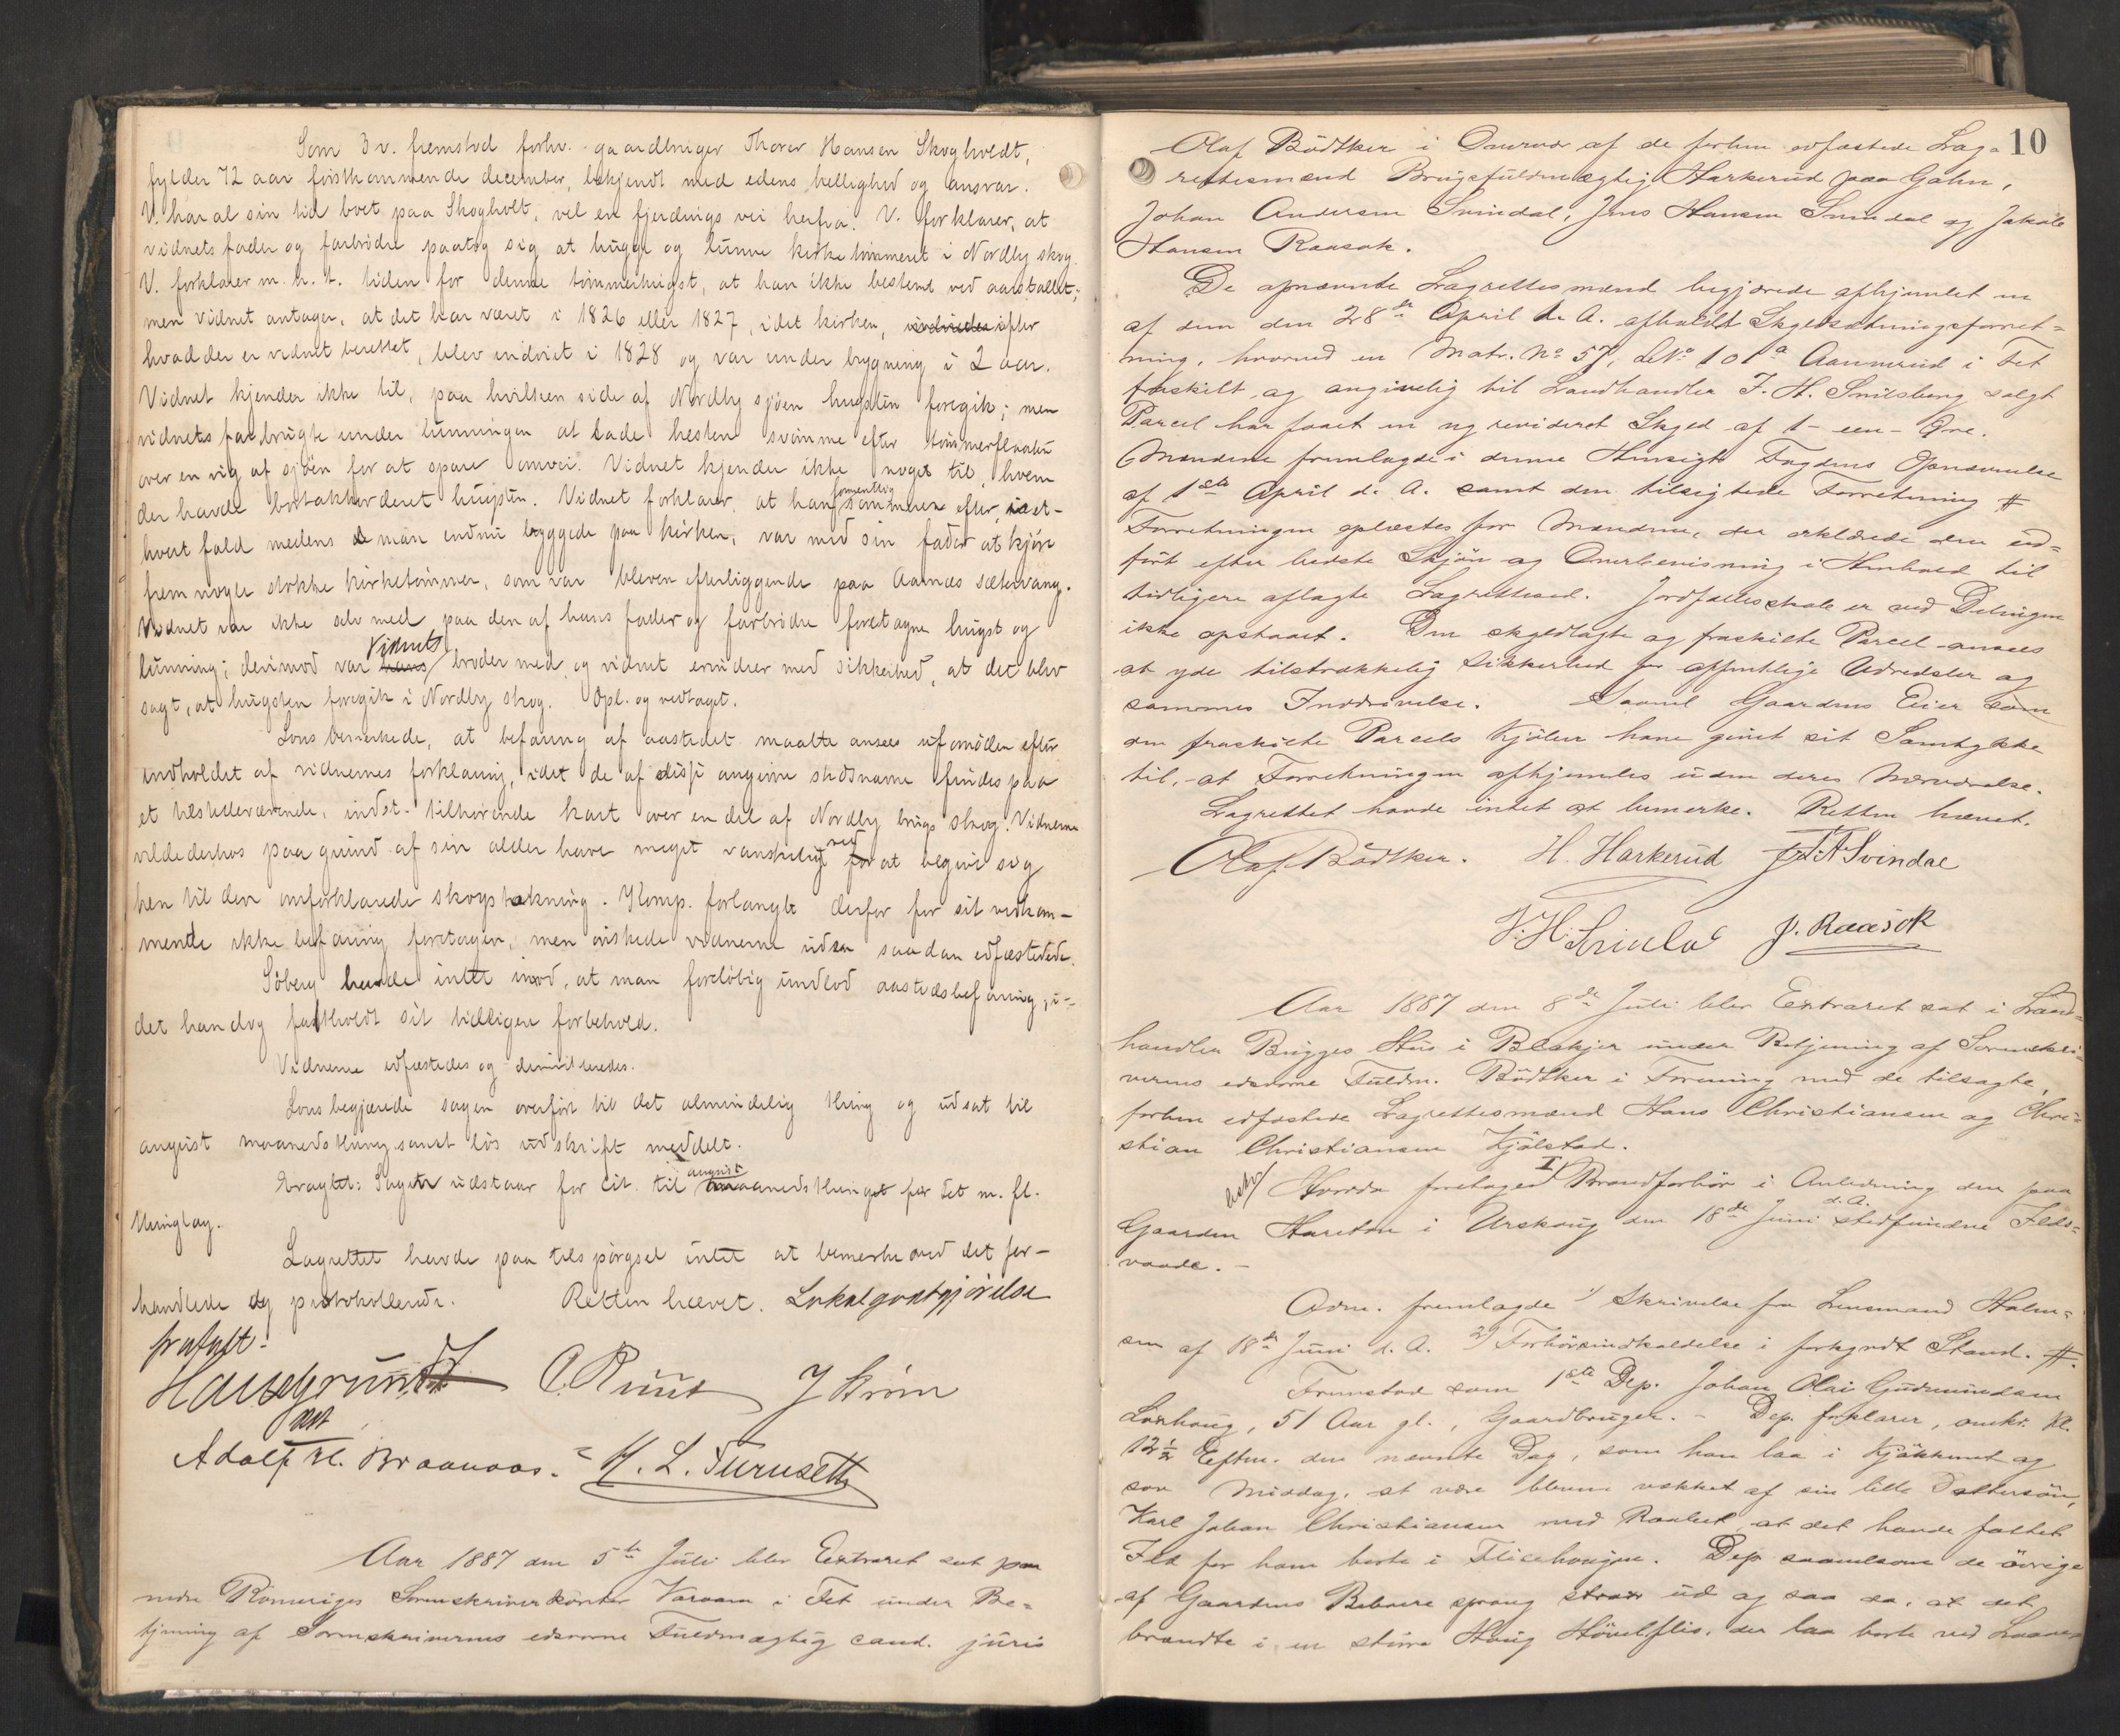 Som 3 v. fremstod forhv. gaardbruger Thorer Hansen Skogholdt,
fylder 72 aar førstkommende december, bekjendt med edens hellighed og ansvar.
V. har al sin tid boet paa Skogholt, vel en fjerdings vei herfra. V. forklarer, at
vidnets fader og farbrødre paatog sig at hugge og lunne kirketømmeret i Nordby skog.
V. forklarer m. h. t. tiden for denne tømmerhugst, at han ikke bestemt ved aarstallet;
men vidnet antager, at det har været i 1826 eller 1827, idet kirken, efter
hvad der er vidnet berettet, blev indviet i 1828 og var under bygning i 2 aar.
Vidnet kjender ikke til, paa hvilken side af Nordby sjøen hugsten foregik; men
vidnets far brugte under lunningen at lade hesten svømme efter tømmerflaaten
over en vig af sjøen for at spare omvei. Vidnet kjender ikke noget til, hvem
der havde bortakkorderet hugsten. Vidnet forklarer, at han formentlig sommeren efter, i et-
hvert fald medens man endnu byggede paa kirken, var med sin fader at kjøre
frem nogle stokke kirketømmer, som var bleven efterliggende paa Aarnæs sætervang.
Vidnet var ikke selv med paa den af hans fader og farbrødre foretagne hugst og
lunning; derimod var hans Vidnets broder med, og vidnet erindrer med sikkerhed, at det blev
sagt, at hugsten foregik i Nordby skog. Opl. og vedtaget.
Lous bemerkede, at befaring af aastedet maatte ansees ufornøden efter
indholdet af vidnernes forklaring, idet de af disse angivne stedsnavne findes paa
et tilstedeværende, indst. tilhørende kart over en del af Nordby brugs skog. Vidnerne
vilde derhos paa grund af sin alder have meget vanskeligt ved for at begive sig
hen til den omforklarede skogstrækning. Komp. forlangte derfor for sit vedkom-
mende ikke befaring foretagen, men ønskede vidnerne uden saadan edfæstede.
Søberg havde intet imod, at man foreløbig undlod aastedsbefaring, i-
det han dog fastholdt sit tidligere forbehold.
Vidnerne edfæstedes og dimitteredes.
Lous begjærede sagen overført til det almindelig thing og udsat til
august maanedsthing samt løs udskrift meddelt.
Eragtet: Sagen udstaar for cit. til august maanedsthinget for Fet m. fl.
thinglag.
Lagrettet havde paa tilspørgsel intet at bemerke ved det for-
handlede og protokollerede. Retten hævet. Lokalgodtgjørelse
frafalt.
Hansgrundt O. Ruud J Strøm
Adolf M. Braanaas. M. L. Turuseth
Aar 1887 den 5te Juli blev Extraret sat paa
nedre Romeriges Sorenskriverkontor Varaaen i Fet under Be-
tjening af Sorenskriverens edsvorne Fuldmægtig cand. juris
10
Olaf Bödtker i Overvær af de forhen edfæstede Lag-
rettesmænd Brugsfuldmægtig Harkerud paa Gahn,
Johan Andersen Svindal, Jens Hansen Svindal og Jakob
Hansen Raasok.
De opnævnte Lagrettesmænd begjærede afhjemlet en
af dem den 28de April d. A. afholdt Skyldsætningsforret-
ning, hvorved en Matr. No 57, LNo 101a Aamerud i Fet
fraskilt, og angivelig til Landhandler F. H. Snilsberg solgt
Parcel har faaet en ny revideret Skyld af 1 - een - Øre.
Mændene fremlagde i denne Hensigt Fogdens Opnævnelse
af 1ste April d. A. samt den tilsigtede Forretning #
Forretningen oplæstes for Mændene, der erklærede den ud-
ført efter bedste Skjøn og Overbevisning i Henhold til
tidligere aflagte Lagrettesed. Jordfællesskab er ved Delingen
ikke opstaaet. Den skyldlagte og fraskilte Parcel ansees
at yde tilstrækkelig Sikkerhed for offentlige Udredsler og
sammes Inddrivelse. Saavel Gaardens Eier som
den fraskilte Parcels Kjøber have givet sit Samtykke
til, at Forretningen afhjemles uden deres Nærværelse.
Lagrettet havde intet at bemerke. Retten hævet.
Olaf Bödtker. H. Harkerud J. A. Svindal
J. H. Svindal J. Raasok
Aar 1887 den 8de Juli blev Extraret sat i Land-
handler Brygges Hus i Blakjer under Betjening af Sorenskri-
verens edsvorne Fuldm. Bödtker i Forening med de tilsagte,
forhen edfæstede Lagrettesmænd Hans Christiansen og Chri-
stian Christiansen Kjølstad.
Hvorda foretoges I Brandforhør i Anledning den paa
Gaarden Hareton i Urskoug den 18de Juni d. A. stedfundne Ilds-
vaade. -
Adm. fremlagde 1) Skrivelse fra Lensmand Holm-
sen af 18de Juni d. A. 2) Forhørsindkaldelse i forkyndt Stand. #.
Fremstod som 1ste Dep. Johan Olai Gudmundsen
Loxhoug, 51 Aar gl., Gaardbruger. - Dep. forklarer, omkr. Kl.
12½ Efterm. den nævnte Dag, som han laa i Kjøkkenet og
sov Middag, at være bleven vækket af sin lille Dattersøn,
Karl Johan Christiansen med Raabet, at det havde fattet
Ild for ham borte i Flisehougen. Dep. saavelsom de øvrige
af Gaardens Beboere sprang strax ud og saa da, at det
brændte i en større Houg Høvelflis, der laa borte ved Laaven